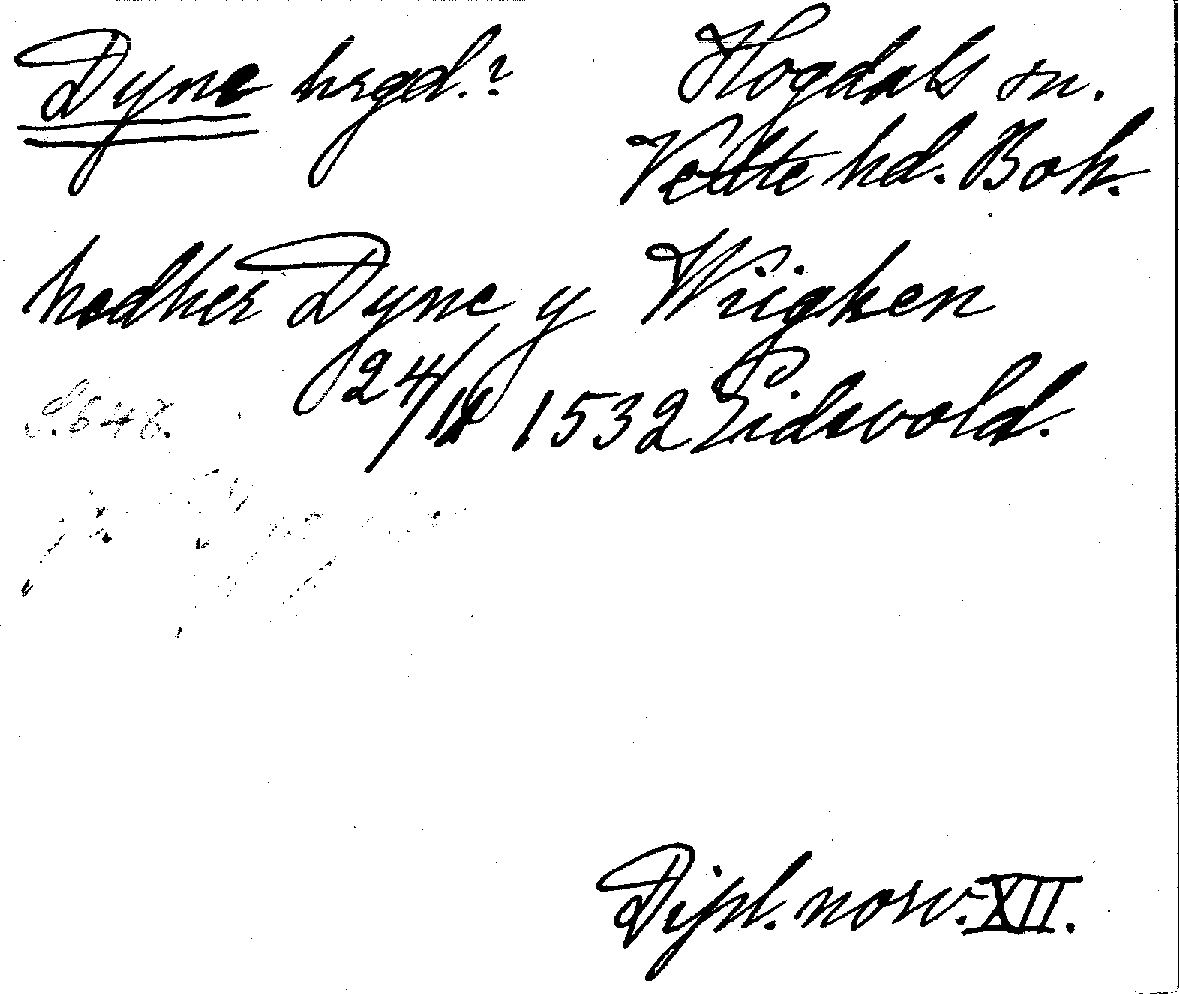 Dyne hrgd.? Hogdals sn.
Vette hd. Boh.
hedher Dyne y Wiigken
24/11 1532 Eidsvold.
S. 648.
Dipl. norv. XII.